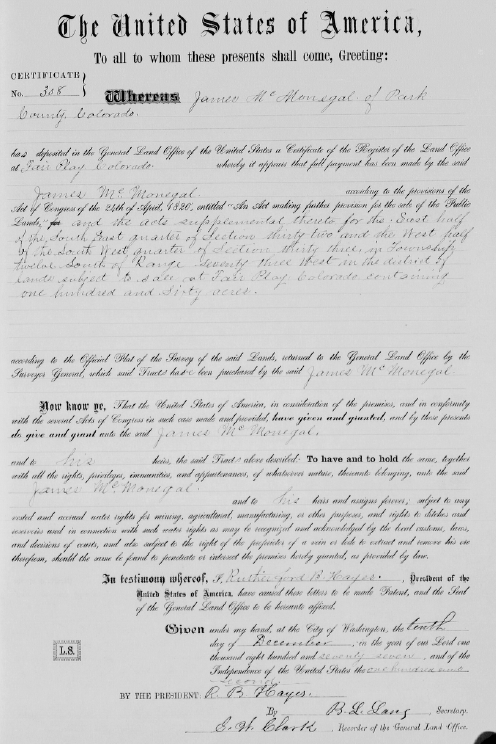 The United States of America,
To all to whom these presents shall come, Greeting:
CERTIFICATE
No. 308
Whereas James McMonegal of Park
County, Colorado.
has deposited in the General Land Office of the United States a Certificate of the Register of the Land Office
at Fair Play Colorado whereby it appears that full payment has been made by the said
James McMonegal according to the provisions of the
Act of Congress of the 24th of April, 1820, entitled "An Act making further provision for the sale of the Public
Lands," and the acts supplemental thereto for the East half
of the South East quarter of Section thirty two and the West half
of the South West quarter of Section thirty three in Township
twelve South of Range seventy three West in the district of
lands subject to sale at Fair Play Colorado containing
one hundred and sixty acres.
according to the Official Plat of the Survey of the said Lands, returned to the General Land Office by the
Surveyor General, which said Tracts have been purchased by the said James McMonegal
Now know ye, That the United States of America, in consideration of the premises, and in conformity
with the several Acts of Congress in such case made and provided, have given and granted, and by these presents
do give and grant unto the said James McMonegal,
and to his heirs, the said Tracts above described: To have and to hold the same, together
with all the rights, privileges, immunities, and appurtenances, of whatsoever nature, thereunto belonging, unto the said
James McMonegal
and to his heirs and assigns forever, subject to any
vested and accrued water rights for mining, agricultural, manufacturing, or other purposes, and rights to ditches and
reservoirs used in connection with such water rights as may be recognized and acknowledged by the local customs, laws,
and decisions of courts, and also subject to the right of the proprietor of a vein or lode to extract and remove his ore
therefrom, should the same be found to penetrate or intersect the premises hereby granted, as provided by law.
In testimony whereof, I, Rutherford B. Hayes, President of the
United States of America, have caused these letters to be made Patent, and the Seal
of the General Land Office to be hereunto affixed.
Given under my hand, at the City of Washington, the tenth
day of December, in the year of our Lord one
thousand eight hundred and seventy seven, and of the
Independence of the United States the one hundred and
second.
L.S.
BY THE PRESIDENT: R. B. Hayes.
By B. L. Lang, Secretary.
E. W. Clark, Recorder of the General Land Office.